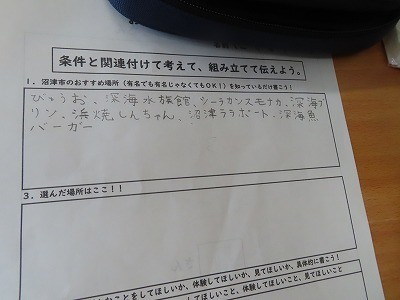 条件と関連付けて考えて、組み立てて伝えよう。
1．沼津市のおすすめ場所（有名でも有名じゃなくてもOK！）を知っているだけ書こう！
びゅうお、深海水族館、シーラカンスモナカ、深海プ
リン、浜焼しんちゃん、沼津ララポート、深海魚
バーガー
3．選んだ場所はここ！！
をしてほしいか、体験してほしいか、見てほしいか、具体的に書こう！
こと、体験してほしいこと、見てほしいこと